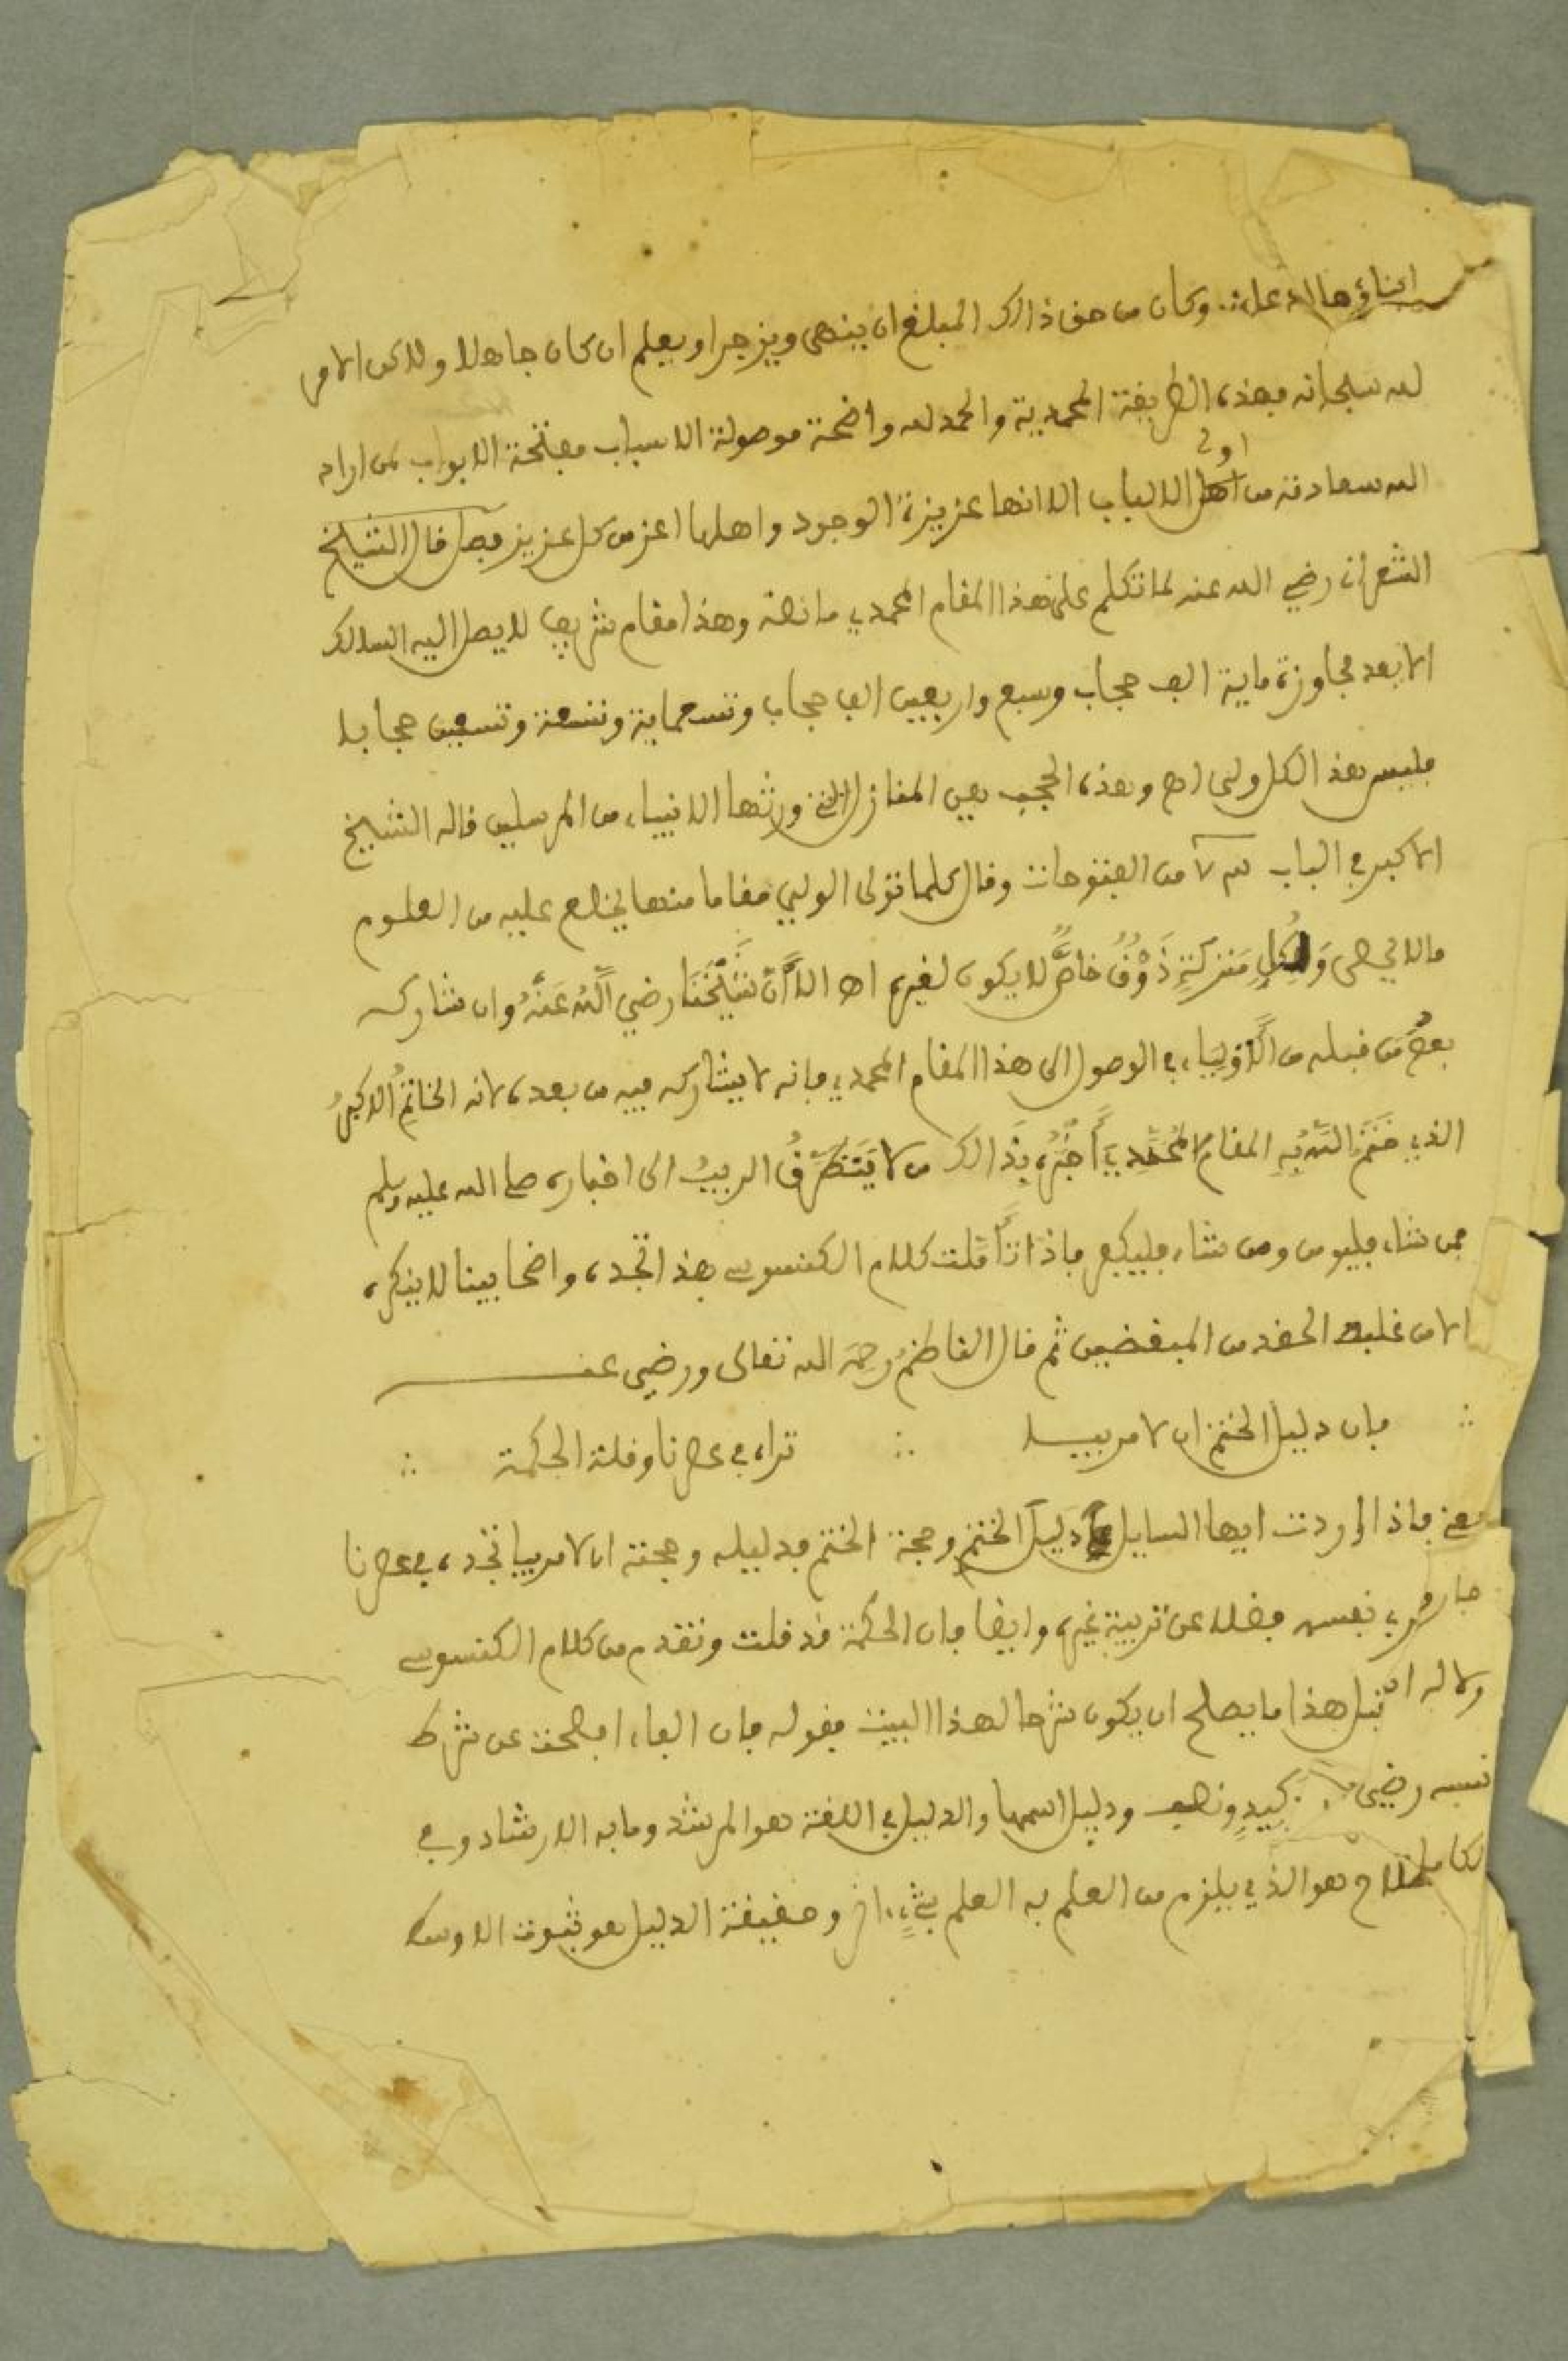 ابناؤها الاعلة ∴ وكان من حق ذالك المبلغ ان ينهى ويزجر او يعلم ان كان جاهلا ولاكن الامر
لله سبحانه فهذه الطريقة المحمدية والحمد لله واضحة موصولة الاسباب مفتحة الابواب لمن اراد
الله سعادته من اولى الالباب الا انها عزيزة الوجود واهلها اعز من كل عزيز فصل قال الشيخ
الشعراني رضي الله عنه لما تكلم على هذا المقام المحمدي ما نصه وهذا مقام شريف لا يصل اليه السالك
الا بعد مجاوزة ماية الف حجاب وسبع واربعين الف حجاب وتسعماية وتسعة وتسعين حجابا
فليس هذا لكل ولى اه وهذه الحجب هي المنازل التي ورثها الانبياء من المرسلين قاله الشيخ
الاكبر في الباب من الفتوحات وقال كلما تولى الولي مقاما منها يخلع عليه من العلوم
ما لا يحصى وَلِكُلِّ مَنزلَةٍ ذَوْقٌ خاصٌّ لا يكون لغيره اه الا أنَّ شَيْخَنَا رضي اللهُ عَنْهُ وان شاركه
بعضُ مَن قبله من الأوْلِيَاء في الوصول الى هذا المقام المحمدي فانه لا يشاركه فيه من بعده لانه الخاتِمُ الاكبرُ
الذي خَتَمَ اللهُ بِهِ المقام المُحَمَّدِيَّ أَخْبَرَهُ بِذَالك من لا يَتَطَرَّقُ الريبُ الى اخباره صلى الله عليه وسلم
فمن شاء فليومن ومن شاء فليكفر فاذا تأَمَّلت كلام الكنسوسي هذا تجده واضحا بينا لا ينكره
الا من غلبه الحقد من المبغضين ثم قال الناظمُ رحمَه الله تعالى ورضي عنه
∴ فان دليل الختم ان لا مربيا ∴ تراه في عصرنا وقلة الحكمة ∴
فاذا اردت ايها السايل دَلِيلَ الختمِ وحجة الختم فدليله وحجته ان لا مربيا تجده في عصرنا
نفسه فضلا عن تربية غيره وايضا فان الحكمة قد قلت وتقدم من كلام الكنسوسي
قبل هذا ما يصلح ان يكون شرحا لهذا البيت فقوله فان الفاء افصحت عن شرط
ونصب ودليل اسمها والدليل في اللغة هو المرشد وما به الارشاد وفي
هو الذي يلزم من العلم به العلم بشيءٍ اخر وحقيقة الدليل هو ثبوت الاوسط